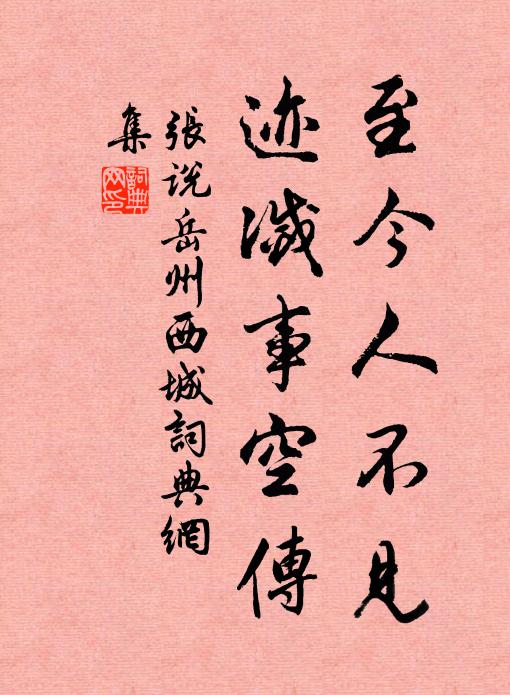 至今人不见
迹滅事空傳
張说岳州西城詞典網
集
詞典
网印